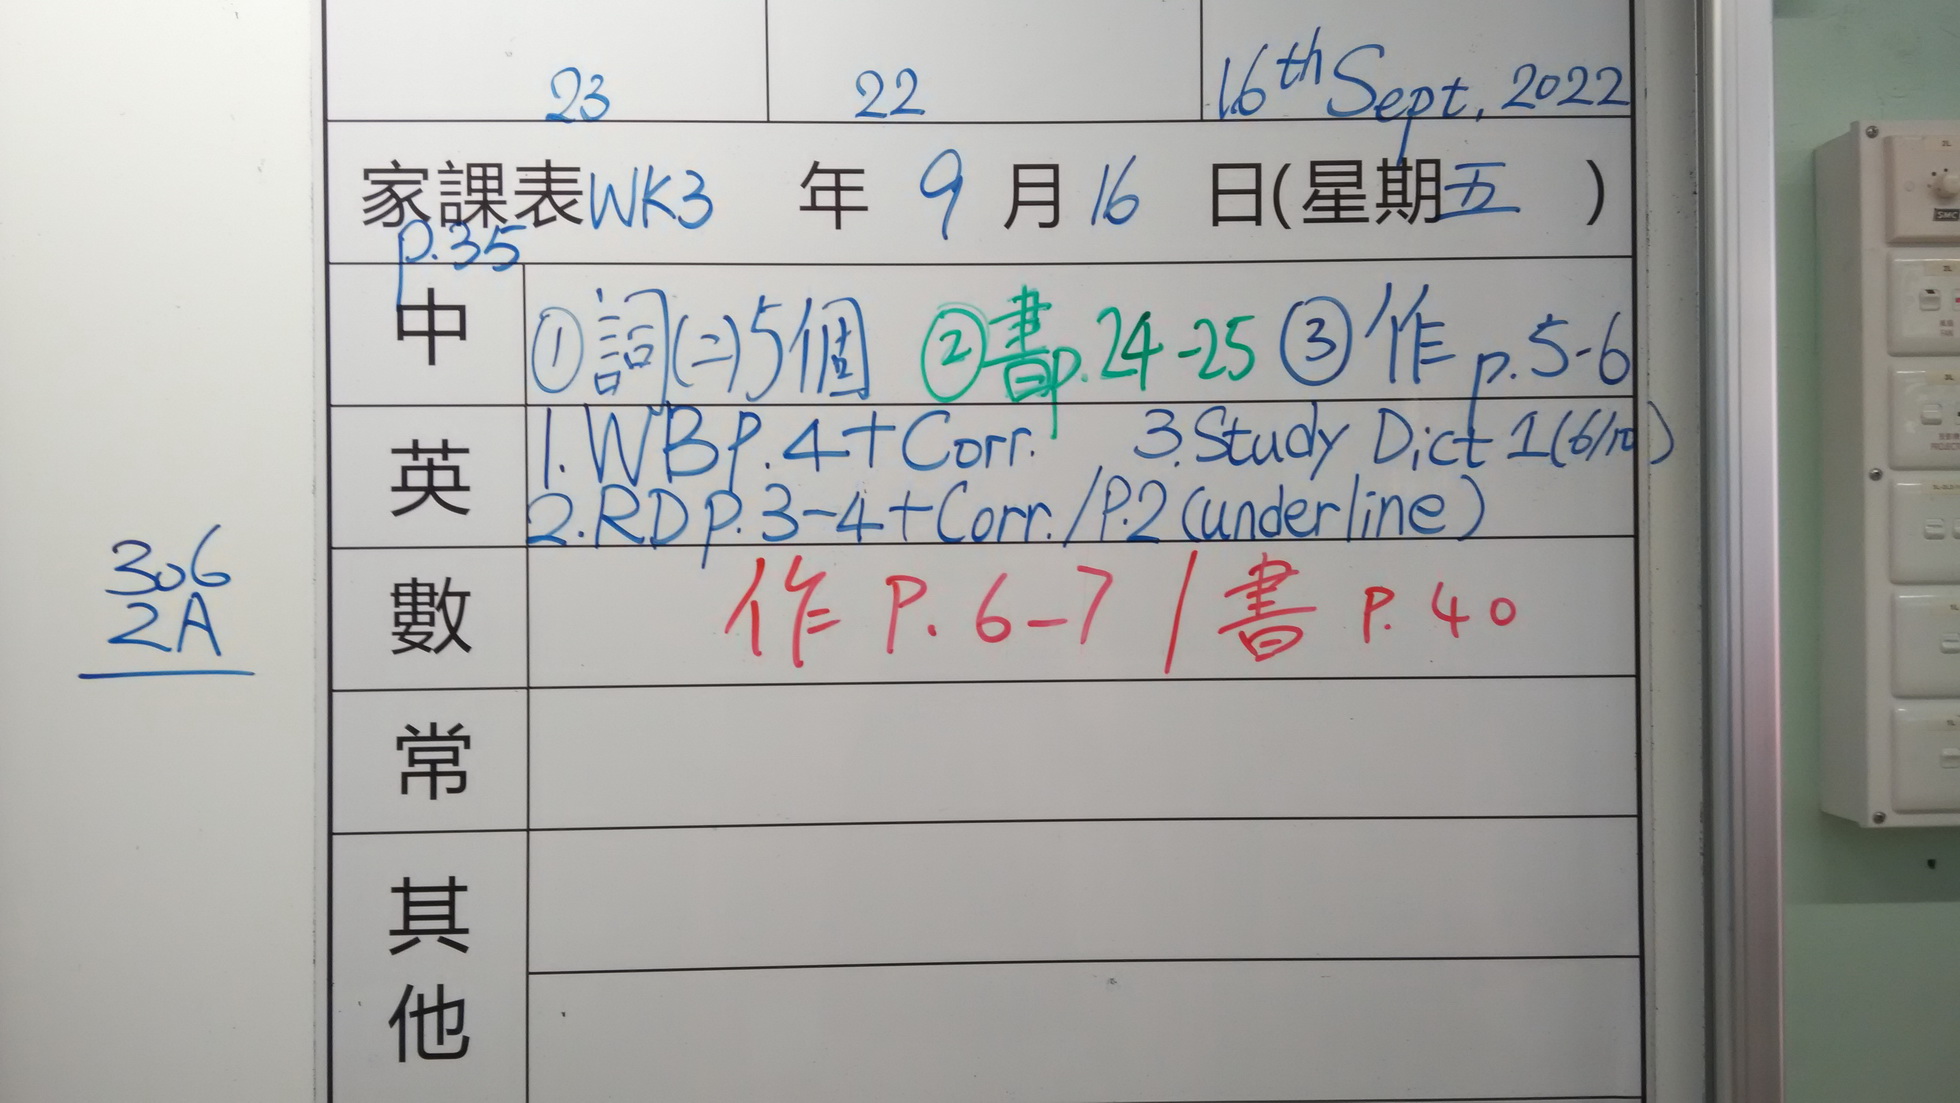 23 22 16th Sept, 2022
家課表WK3 年 9 月 16 日(星期五)
p.35
中 ①詞(二)5個 ②書p.24-25 ③作p.5-6
英 1.WBp.4+Corr. 3.Study Dict 1(6/10)
2.RDp.3-4+Corr./P.2(underline)
306
2A
數 作 P.6-7 / 書 P.40
常
其
他